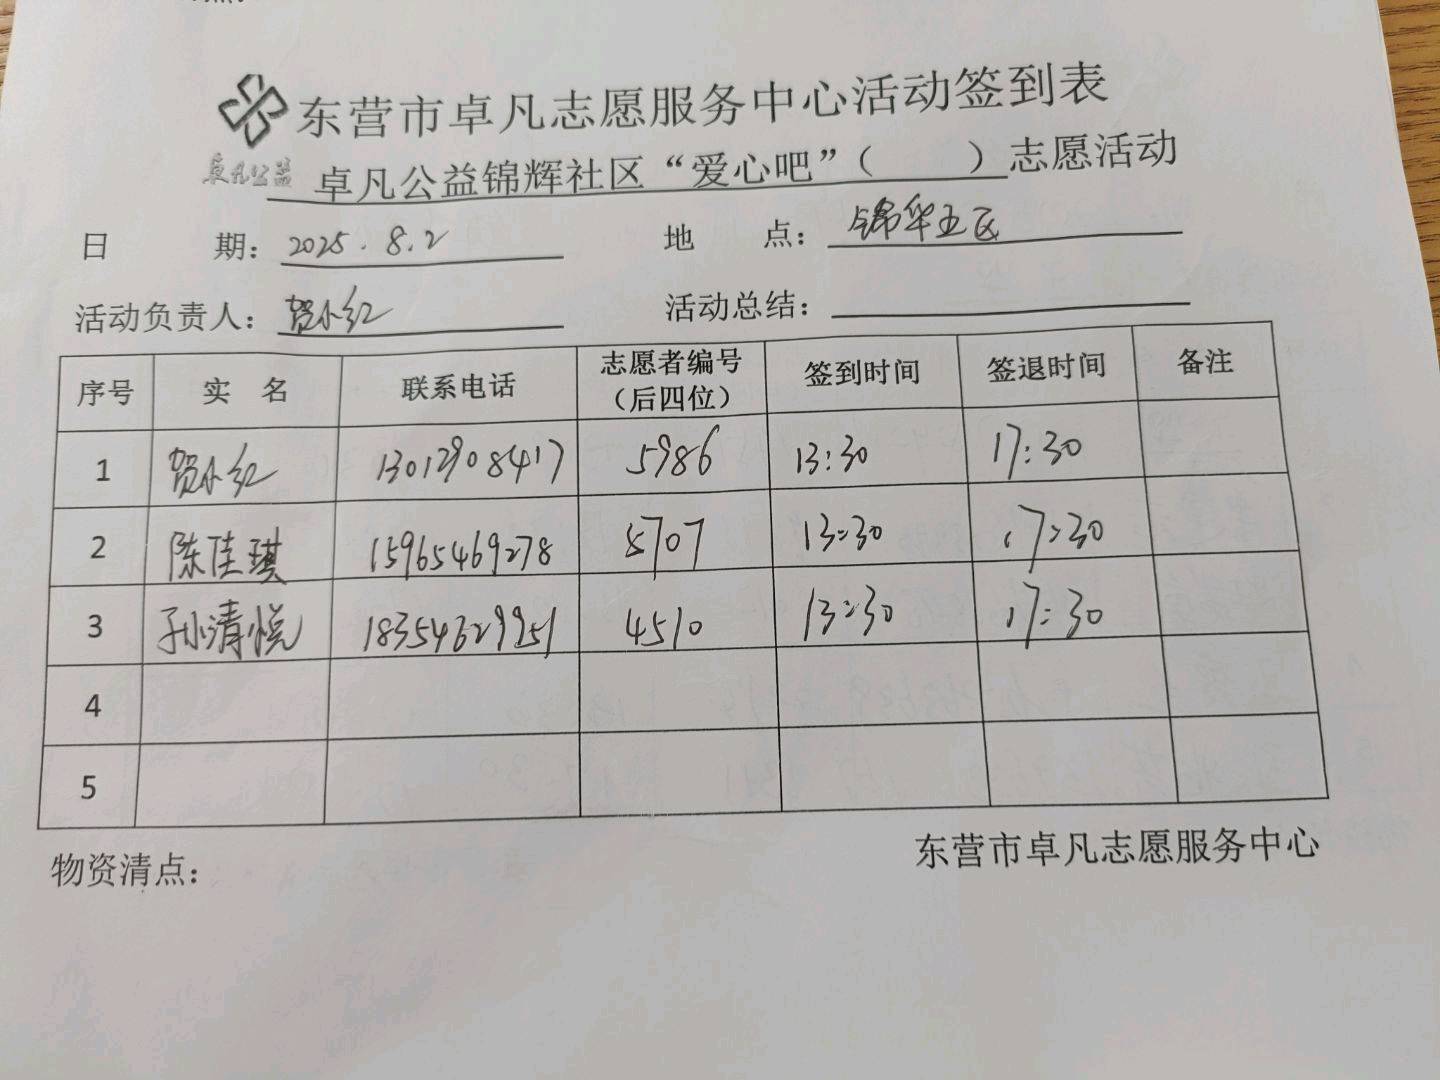 东营市卓凡志愿服务中心活动签到表
卓凡公益
卓凡公益锦辉社区“爱心吧”（ ）志愿活动
日 期：2025.8.2 地 点：锦华五区
活动负责人：贺小红 活动总结：
序号 实 名 联系电话 志愿者编号（后四位） 签到时间 签退时间 备注
1 贺小红 13012908417 5986 13:30 17:30
2 陈佳琪 15965469278 5707 13:30 17:30
3 孙清悦 18354629951 4510 13:30 17:30
4
5
物资清点： 东营市卓凡志愿服务中心